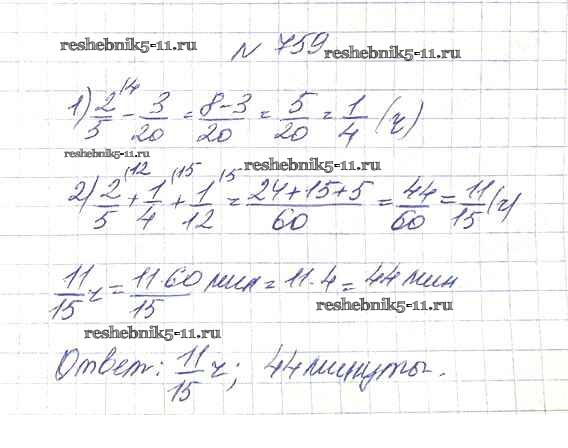 reshebnik5-11.ru
№ 759
reshebnik5-11.ru
1) 2/5 (4 - 3/20 = 8-3/20 = 5/20 = 1/4 (ч)
reshebnik5-11.ru
reshebnik5-11.ru
2) 2/5 (12 + 1/4 (15 + 1/12 (5 = 24+15+5/60 = 44/60 = 11/15 (ч)
11/15 ч = 11·60/15 мин = 11·4 = 44 мин
reshebnik5-11.ru
reshebnik5-11.ru
Ответ: 11/15 ч; 44 минуты.